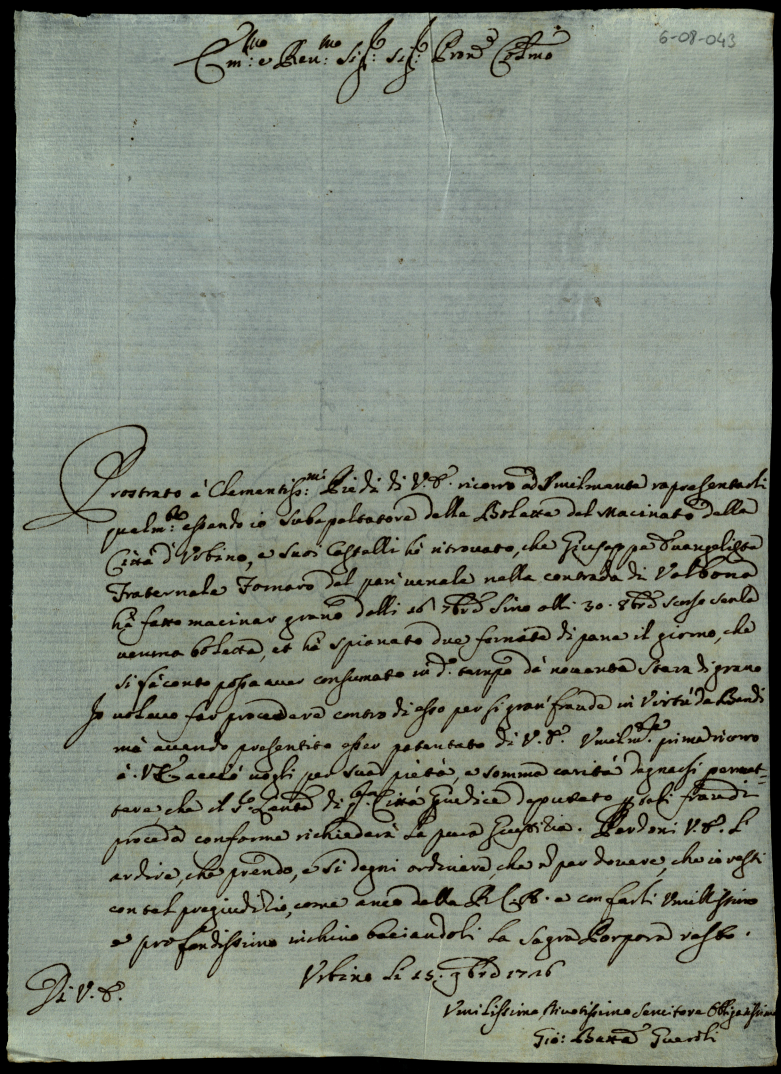 6-08-043
Em:mo e Reu:mo Sig:r Sig:r Pron'e Col:mo
Prostrato à Clementiss:mi Piedi di V.E. ricorro ad Vmilmente rapresentarli
qualm:te essendo io Subapaltatore delle Bolette del Macinato della
Città d'Vrbino, e suoi Castelli hò ritrovato, che Giuseppe Euangelista
Fraternale Fornaro del pan' uenale nella contrada di Valbona
hà fatto macinar grano dalli 16 7bre sino alli 30. 8bre scorso senza
ueruna boletta, et hà spianato due fornate di pane il giorno, che
si fà conto possa auer consumato in d.o tempo da nouanta Stara di grano
Io uoleuo far procedere contro di esso per sì gran' fraude in Virtù de Bandi
mà auendo presentito esser patentato di V.E. Vmilm:te prima ricorro
à V.E. acciò uogli per sua pietà, e somma carità degnarsi permet-
tere, che il S.r Tenente di q'sta Città Giudice deputato sopra tali fraudi
proceda conforme richiederà la pura Giustizia. Perdoni V.E. l'
ardire, che prendo, e si degni ordinare, che è per douere, che io resti
con tal pregiudizio, come anco della R.C.A. e con farli Vmilissimo
e profondissimo inchino baciandoli la Sagra Porpora resto.
Vrbino li 15. 9bre 1716
Di V.E.
Vmilissimo Diuotissimo Seruitore Obligatissimo
Gio: Batta